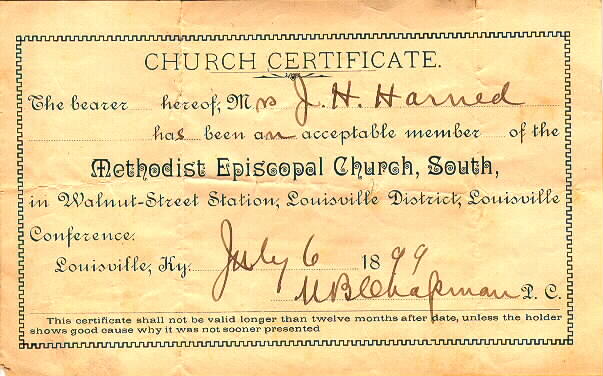 CHURCH CERTIFICATE.
The bearer hereof, Mrs J. H. Harned
has been an acceptable member of the
Methodist Episcopal Church, South,
in Walnut-Street Station, Louisville District, Louisville
Conference.
Louisville, Ky. July 6 1899
Chapman P. C.
This certificate shall not be valid longer than twelve months after date, unless the holder
shows good cause why it was not sooner presented